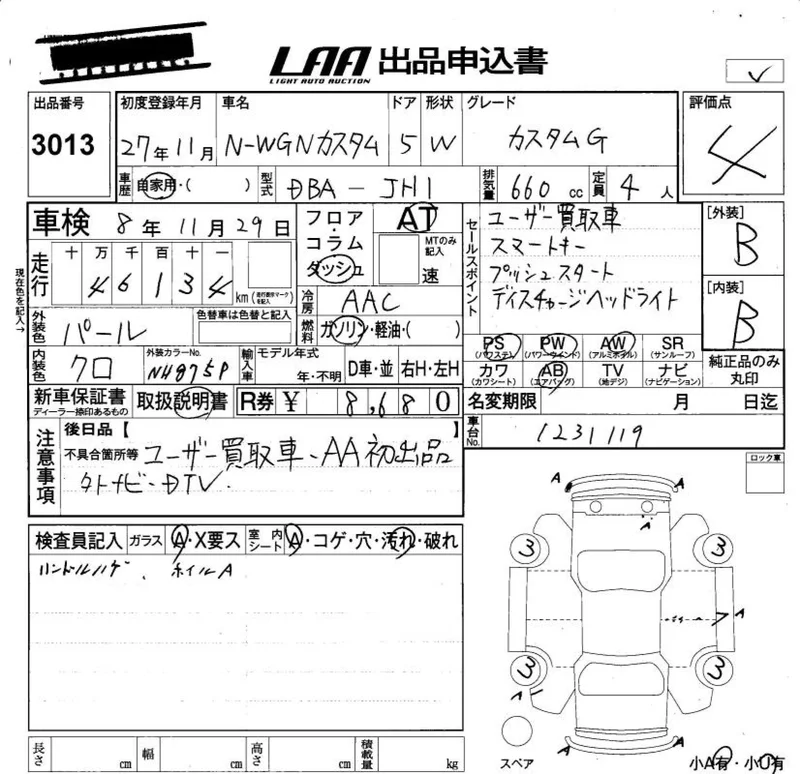 LAA 出品申込書
LIGHT AUTO AUCTION
出品番号 初度登録年月 車名 ドア 形状 グレード 評価点
3013 27年11月 N-WGNカスタム 5 W カスタムG 4
車歴 自家用・( ) 型式 DBA-JH1 排気量 660cc 定員 4人
車検 8年11月29日 フロア・コラム ダッシュ AT MTのみ記入 速
セールスポイント ユーザー買取車
スマートキー
プッシュスタート
ディスチャージヘッドライト
[外装] B
[内装] B
現在色を記入→
走行 十 万 千 百 十 一
4 6 1 3 4 km (走行表示マークを記入)
冷房 AAC
燃料 ガソリン・軽油・( )
外装色 パール 色替車は色替と記入
内装色 クロ 外装カラーNo. NH875P 輸入車 モデル年式 年・不明 D車・並 右H・左H
PS (パワステ) PW (パワーウインド) AW (アルミホイル) SR (サンルーフ)
カワ (カワシート) AB (エアバッグ) TV (地デジ) ナビ (ナビゲーション)
純正品のみ丸印
新車保証書 ディーラー捺印あるもの 取扱説明書 R券 ¥ 8,680
名変期限 月 日迄
車台No. 1231119
注意事項 後日品【 】
不具合箇所等 ユーザー買取車、AA初出品
タトナビ・DTV.
ロック車
検査員記入 ガラス A・X要ス 室内シート A・コゲ・穴・汚れ・破れ
ハンドルハゲ、ホイルA
A A
A
3 3
A
3 3
A
A A
スペア
小A有・小U有
長さ cm 幅 cm 高さ cm 積載量 kg